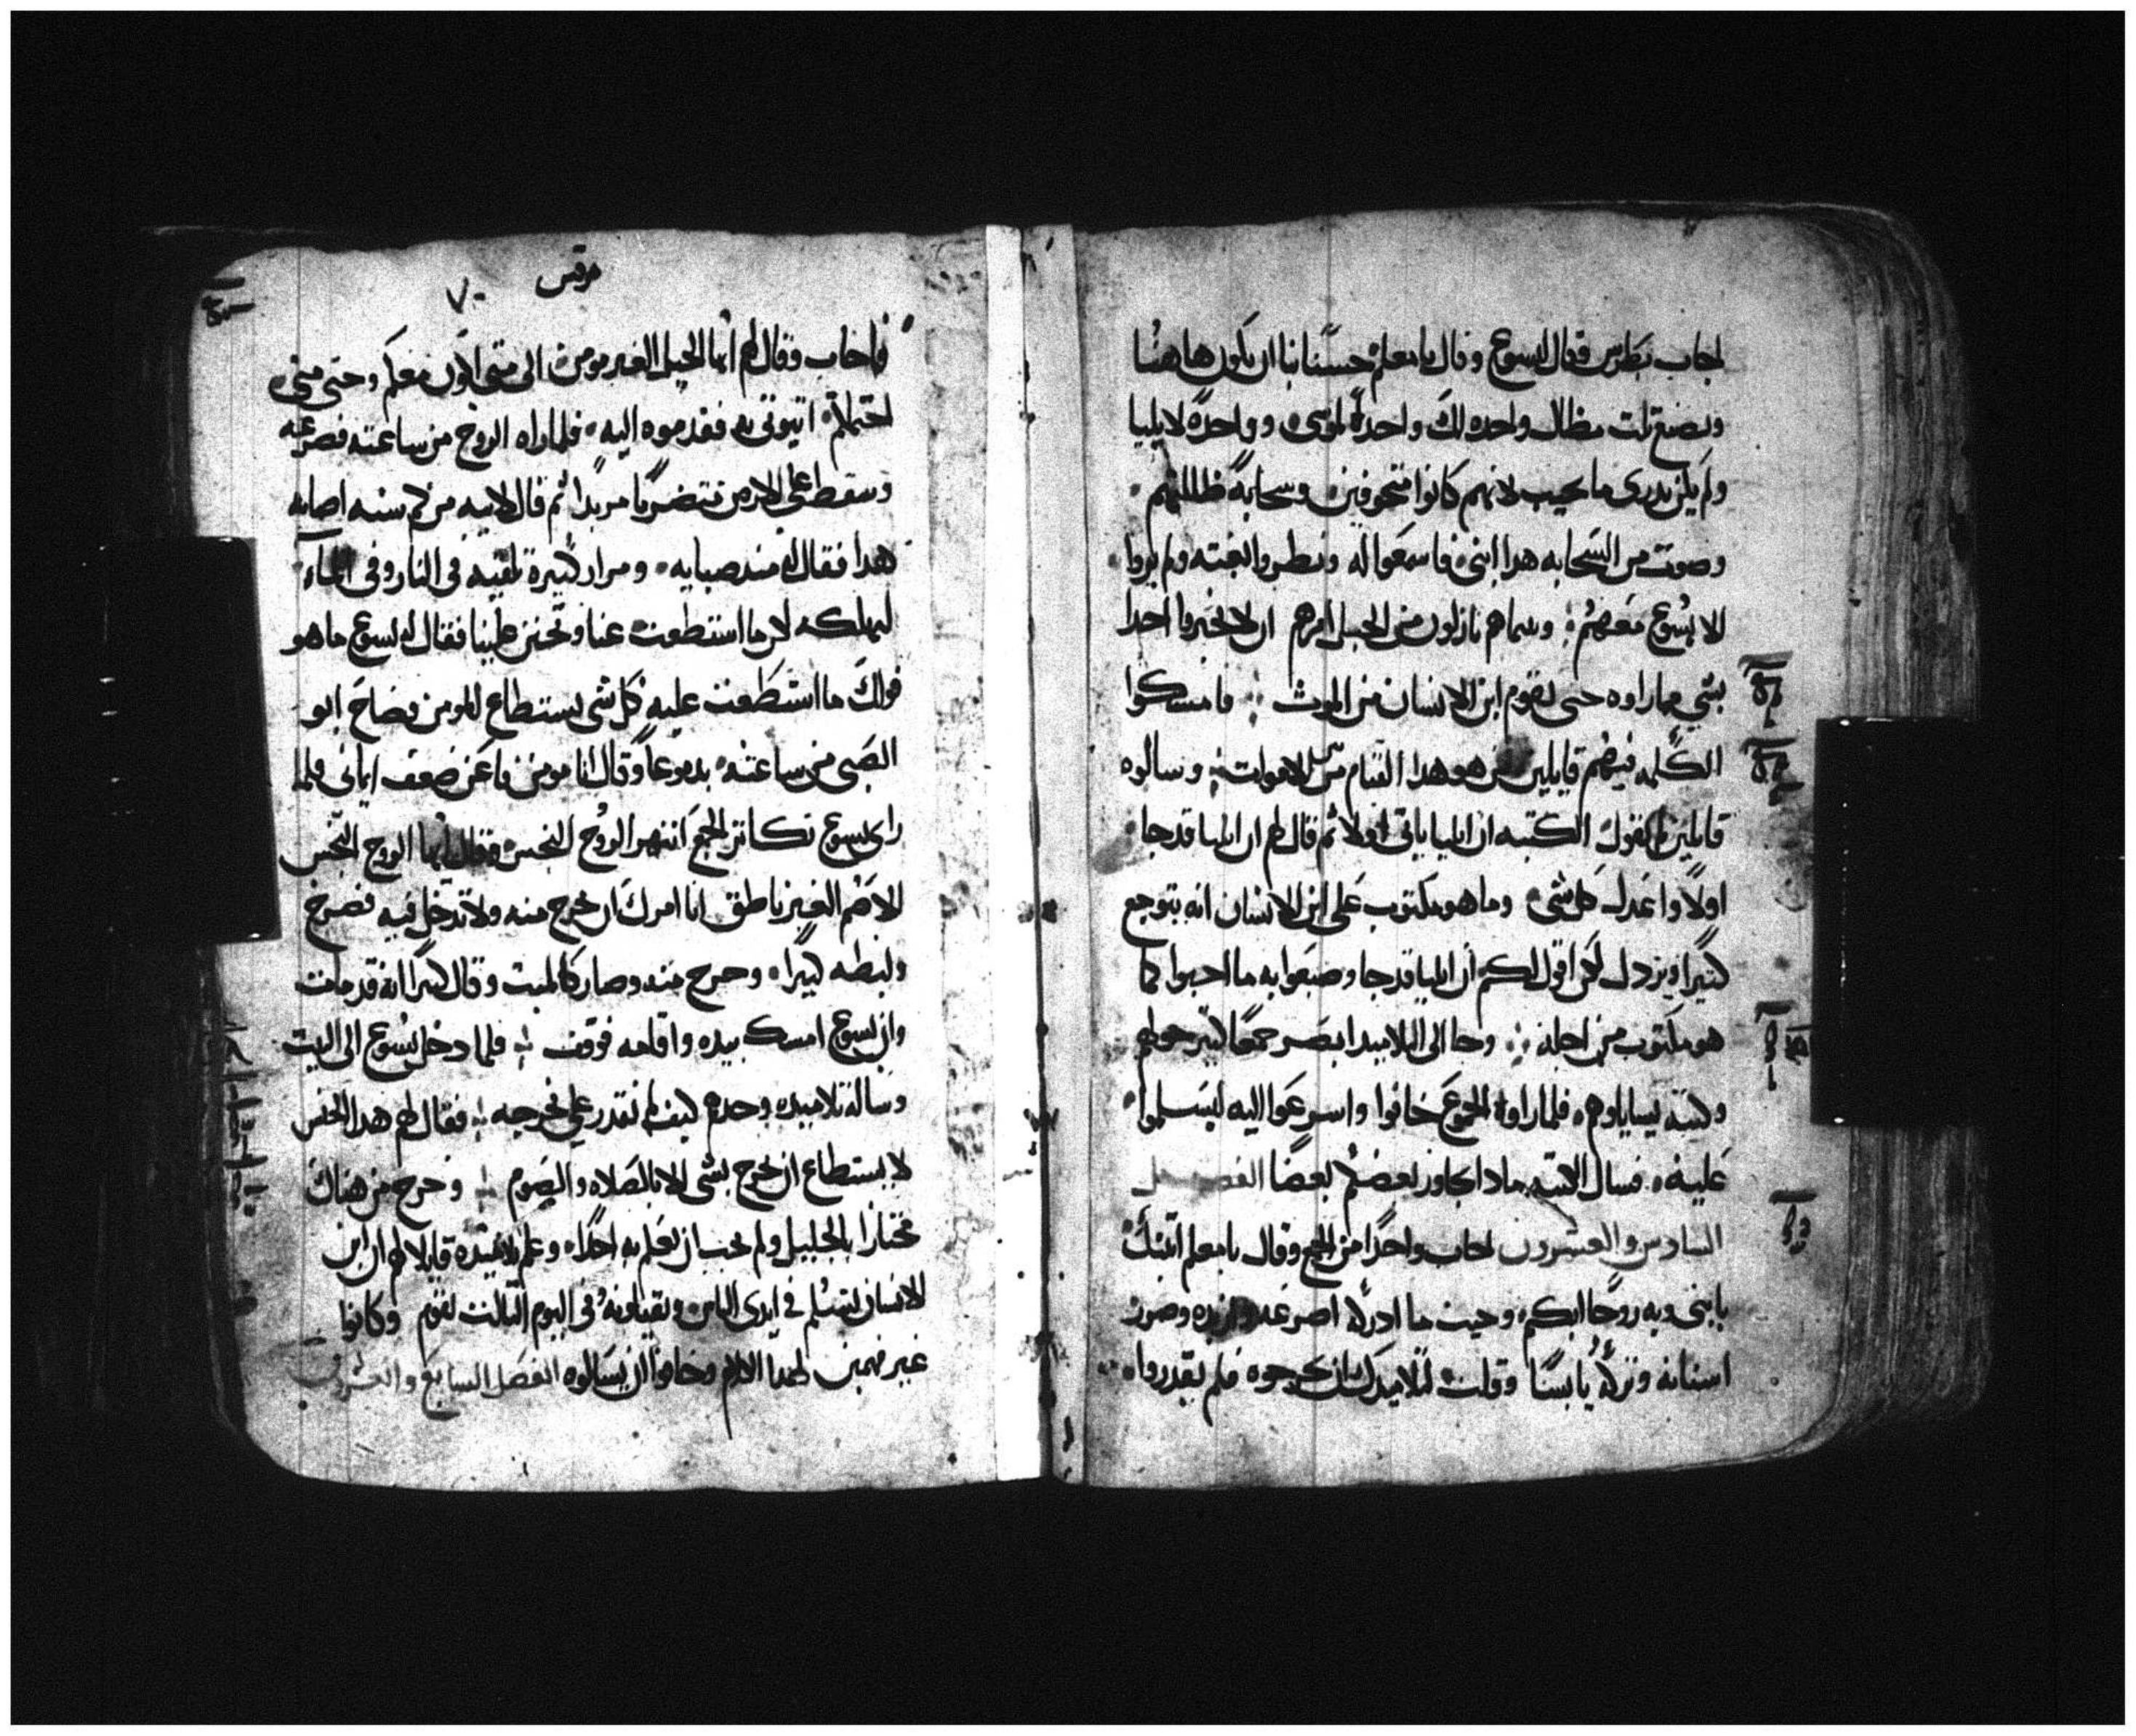 اجاب بطرس فقال ليسوع وقال يا معلم حسنًا بنا ان نكون هاهنُا
ونصنع تلت مظال واحده لك واحدةً لموسى وواحدةً لايليا
ولم يكن يدرى ما يجيب لانهم كانوا متخوفين وسحابةً ظللتهم
وصوت من السحابه هدا ابنى فاسمعوا له ونظروا بغته ولم يروا
الا يسُوع معهمُ وبينما هم نازلون من الجبل امرهم ان لا يخبروا احدا
بشي مما راوه حتى يقوم ابن الانسان من الموت فامسكوا
الكلمه فيهم قايلين هو هدا القيام من الاموات وسالوه
قايلين تقول الكتبه ان ايليا ياتى اولا ثم قال لهم ان ايليا قد جا
اولًا واعدل كل شى وما هو مكتوب على ابن الانسان انه يتوجع
كتيرا ويزدل لكن اقول لكم ان ايليا قد جا وصنعوا به ما احبوا كما
هو مكتوب من اجله وجا الى التلاميد ابصر جمعًا كتير حولهم
وكتبه يسايلوهم فلما راوه الجموع خافوا واسرعوا اليه ليسلموا
عليه فسال الكتبه مادا تجاوز بعضكم بعضًا الفصل
السادس والعشرون اجاب واحدًا من الجمع وقال يا معلم اتيتك
بابنى وبه روحًا ابكم وحيت ما ادركه اصرعه وازبده وصرر
اسنانه وتركه يابسًا وقلت لتلاميدك ان يخرجوه فلم يقدروا
مرقس
٧٠
فاجاب وقال لهم ايها الجيل الغير مومن الى متى اكون معكم وحتى متى
احتملكم اتيونى به فقدموه اليه فلما راه الروح من ساعته فصرعه
وسقط على الارض تتضركًا مربدًا ثم قال لابيه من كم سنه اصابه
هدا فقال له مند صبايه ومرار كتيرة تلقيه فى النار وفى الماء
ليهلكه لكن ما استطعت عنا وتحنن علينا فقال له يسوع ما هو
قولك ما استطعت عليه كل شى يستطاع للمومن فصاح ابو
الصبى من ساعته بدموعًا وقال انا مومن فاعن ضعف ايمانى فلما
راى يسوع تكاتر الجمع انتهر الروُح النجس وقال ايها الروح النجس
الاصم الغير ناطق انا امرك ان تخرج منه ولا تدخل فيه فصرخ
ولبطه كتيرا وخرج منه وصار كالميت وقال كتيرًا انه قد مات
وان يسوع امسك بيده واقامه فوقف فلما دخل يسُوع الى البيت
وساله تلاميده وحدهم كيف لم نقدر على نخرجه فقال لهم هدا الجنس
لا يستطاع ان يخرج بشى الا بالصلاه والصوم وخرج من هناك
مختازا بالجليل ولم يحب ان يعلم به احدًا وعلم تلاميده قايلا لهم ان ابن
الانسان لتسُلم في ايدى الناس ويقتلونه وفى اليوم التالت يقوم وكانوا
غير فهمين لهدا الكلام وخافوا ان يسالوه الفصل السابع والعشرون